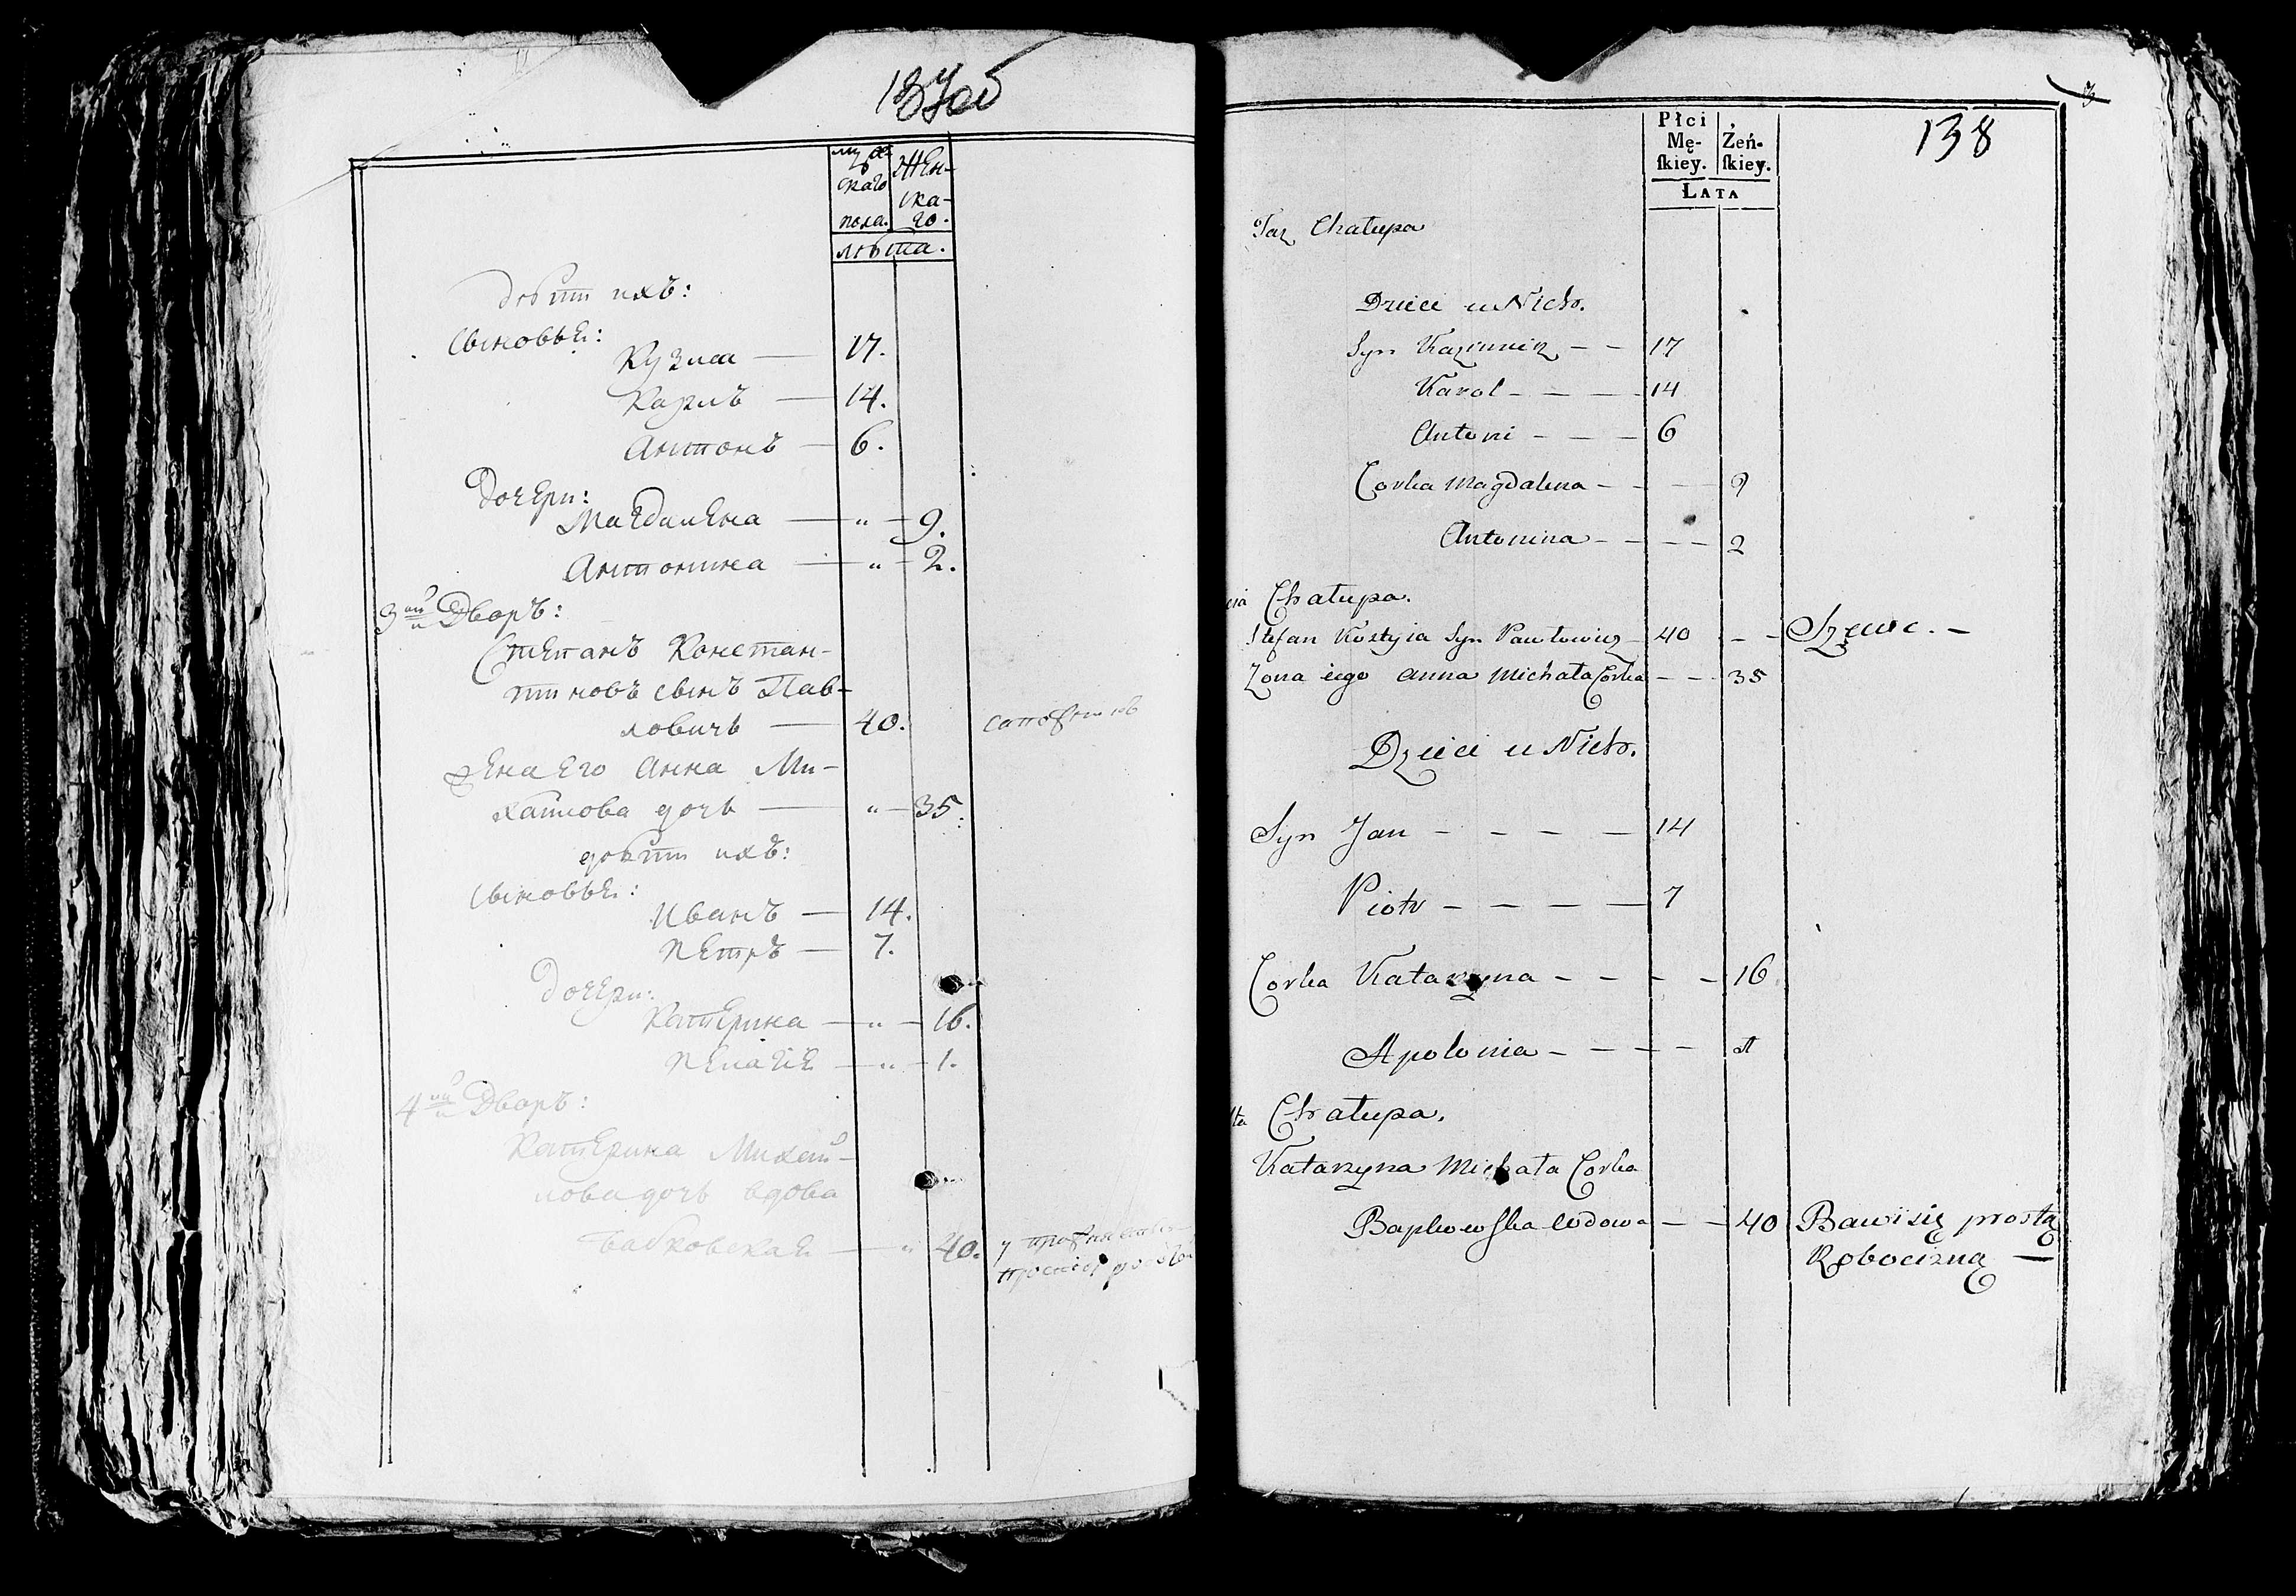 137об
мужескаго пола.
Женскаго.
лѣта.
дѣти ихъ:
сыновья:
Кузма — 17.
Карлъ — 14.
Антонъ — 6.
Дочери:
Магдалена — " — 9.
Антонина — " — 2.
3ий Дворъ:
Степанъ Констан-
тиновъ сынъ Пав-
ловичь — 40.
сапожникъ
жена его Анна Ми-
хайлова дочь — " — 35.
дѣти ихъ:
сыновья:
Иванъ — 14.
Петръ — 7.
Дочери:
Катерина — " — 16.
Пелагея — " — 1.
4ий Дворъ:
Катерина Михай-
лова дочь вдова
Бабковская — " 40.
138
Płci
Mę-
ſkiey.
Żeń-
ſkiey.
LATA
Taz Chałupa
Dzieci u Nich.
Syn Kazimierz — — 17
Karol — — — 14
Antoni — — — 6
Corka Magdalena — — — 9
Antonina — — — — 2
cia Chałupa.
Stefan Kostyia Syn Pawłowicz — 40 — — Szewc. —
Zona iego Anna Michała Corka — — 35
Dzieci u Nich.
Syn Jan — — — — 14
Piotr — — — — 7
Corka Katarzyna — — — — 16
Apolonia — — — — 1
ta Chałupa.
Katarzyna Michała Corka
Bapkowſka wdowa — — 40 Bawi się prostą
Robocizną —